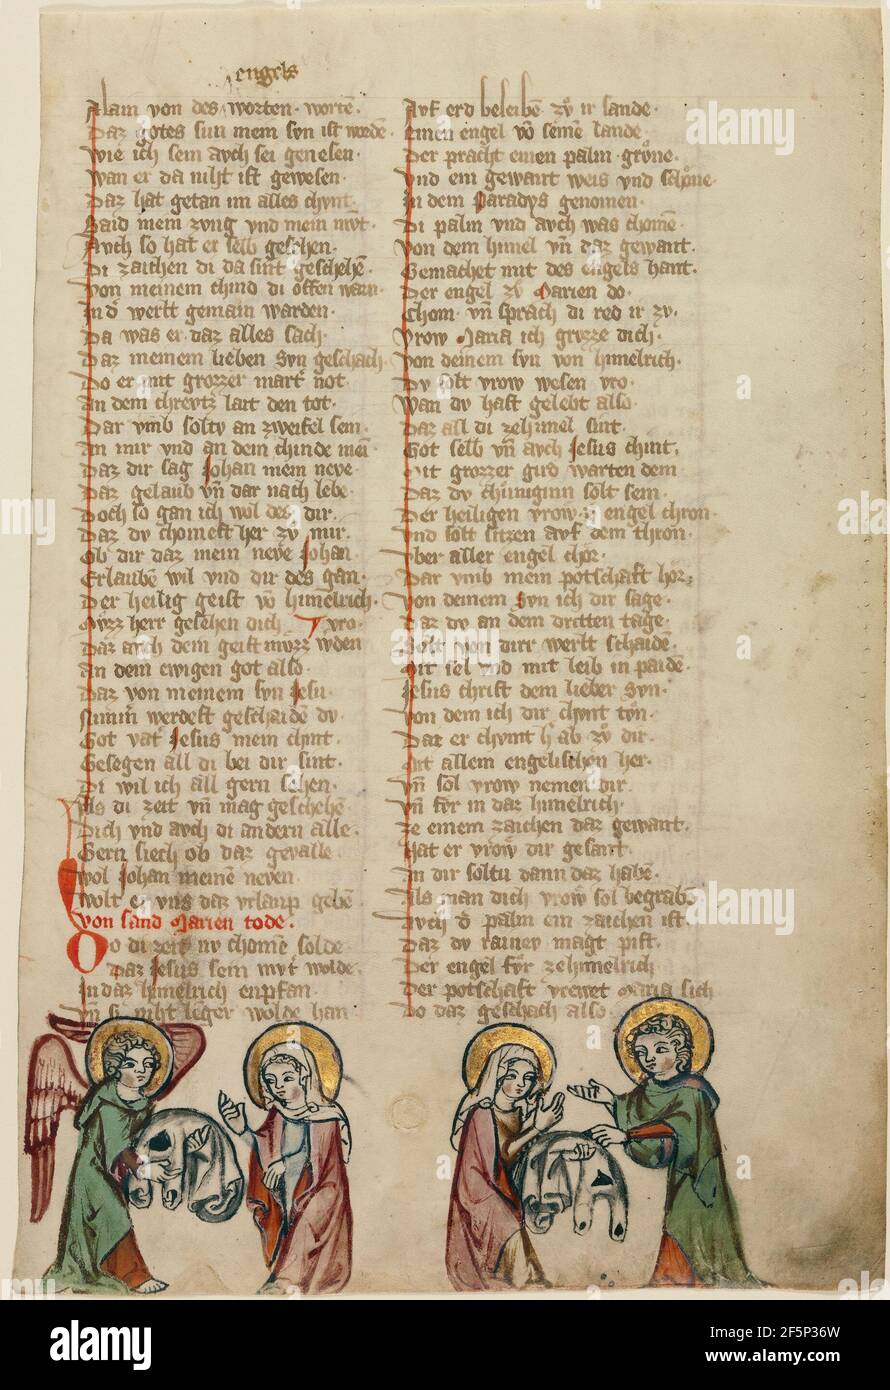 engels
Alain von des worten worte.
Daz gotes sun mein syn ist worde.
Wie ich sein auch sei genesen.
Wan er da niht ist gewesen.
Daz hat getan im alles chunt.
Said mein zung vnd mein mvt.
Auch so hat er selb gesehen.
Di zaichen di da sint geschehē.
Von meinem chind di offen warn.
In d' werlt gemain warden.
Da was er daz alles sach.
Daz meinem lieben syn geschach
Do er mit grozzer mart' not.
An dem chreutz lait den tot.
Dar vmb soltu an zweifel sein.
An mir vnd an dem chinde mei
Daz dir sag Johan mein neve
Daz gelaub vn̄ dar nach lebe.
Doch so gan ich wol des dir.
Daz du chomest her zu mir.
Ob dir daz mein neve Johan.
Erlaubē wil vnd dir des gan.
Der heilig geist vō himelrich.
Mvzz herr gesehen dich vro.
Daz auch dem geist muzz wden
An dem ewigen got also.
Daz von meinem syn Jesu.
Nimm' werdest geschaidē du.
Got vat' Jesus mein chint.
Gesegen all di bei dir sint.
Di wil ich all gern sehen.
Als di zeit vn̄ mag geschehē
Dich vnd auch di andern alle.
Gern siech ob daz gevalle.
Wol Johan meinē neven
Wolt er vns daz vrlaup gebē
Von sand Marien tode.
Do di zeit nv chomē solde
Daz Jesus sein mvt' wolde.
In daz himelrich enpfan.
Vn si niht leger wolde han
Auf erd beleibē zu ir sande.
Einen engel vō seinē lande
Der pracht einen palm grōne.
Vnd ein gewant weis vnd schone
In dem Paradys genomen.
Di palm vnd auch was chomē
Von dem himel vn̄ daz gewant.
Gemachet mit des engels hant.
Der engel zu Marien do.
Chom vn̄ sprach di red ir zv.
Vrow Maria ich gruzze dich.
Von deinem syn von himelrich.
Du solt vrow wesen vro.
Wan du hast gelebt also.
Daz all di zehimel sint.
Got selb vn̄ auch Jesus chint.
Mit grozzer gird warten dem
Daz du chuniginn solt sein.
Der heiligen vrow engel chron.
Vnd solt sitzen auf dem thron.
Vber aller engel chor.
Dar vmb mein potschaft hor.
Von deinem Syn ich dir sage.
Daz du an dem dritten tage.
Solt von dirr werlt schaidē.
Mit sel vnd mit leib in paidē.
Jesus christ dem lieber syn.
Von dem ich dir chunt tun.
Daz er chumt h' ab zu dir.
Mit allem engelischen her.
Vn̄ sol vrow nemen dir
Vn̄ fur in daz himelrich.
Ze einem zaichen daz gewant.
Hat er vrow dir gesant.
In dir soltu dann daz habē.
Als man dich vrow sol begrabē
Auch d' palm ein zaichen ist.
Daz du rainev magt pist.
Der engel fur zehimelrich
Der potschaft vrewet Maria sich
Do daz geschach also.
alamy
Image ID: 2F5P36W
www.alamy.com